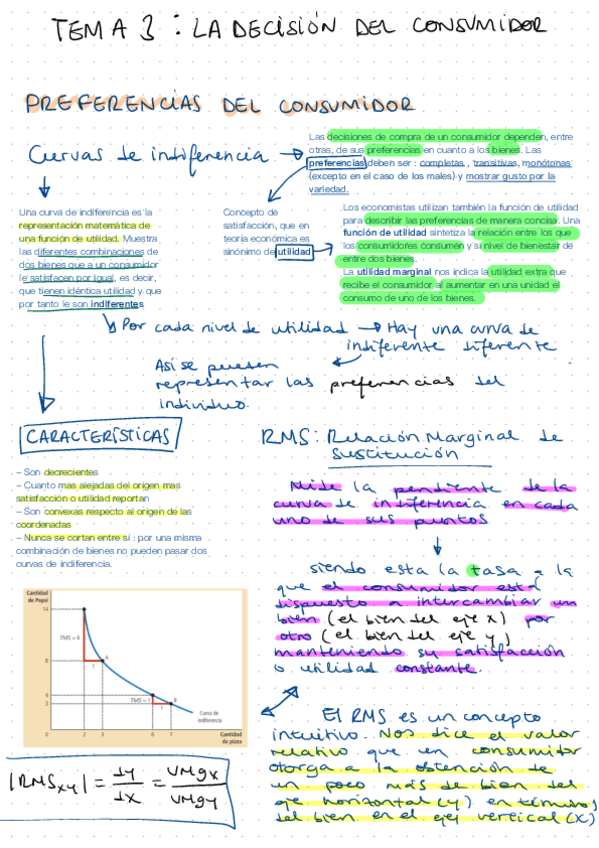 TEMA 3 : LA DECISIÓN DEL CONSUMIDOR
PREFERENCIAS DEL CONSUMIDOR
Curvas de indiferencia →
Las decisiones de compra de un consumidor dependen, entre
otras, de sus preferencias en cuanto a los bienes. Las
preferencias deben ser : completas , transitivas, monótonas
(excepto en el caso de los males) y mostrar gusto por la
variedad.
Una curva de indiferencia es la
representación matemática de
una función de utilidad. Muestra
las diferentes combinaciones de
dos bienes que a un consumidor
le satisfacen por igual, es decir,
que tienen idéntica utilidad y que
por tanto le son indiferentes
Concepto de
satisfacción, que en
teoria económica es
sinónimo de utilidad
Los economistas utilizan también la función de utilidad
para describir las preferencias de manera concisa. Una
función de utilidad sintetiza la relación entre los que
los consumidores consumen y si nivel de bienestar de
entre dos bienes.
La utilidad marginal nos indica la utilidad extra que
recibe el consumidor al aumentar en una unidad el
consumo de uno de los bienes.
Por cada nivel de utilidad → Hay una curva de
indiferente diferente
Así se pueden
representar las preferencias del
individuo.
CARACTERÍSTICAS
– Son decrecientes
– Cuanto mas alejadas del origen mas
satisfacción o utilidad reportan
– Son convexas respecto al origen de las
coordenadas
– Nunca se cortan entre si : por una misma
combinación de bienes no pueden pasar dos
curvas de indiferencia.
Cantidad
de Pepsi
14
TMS = 6
8
A
1
4
TMS = 1
B
3
1
Curva de
indiferencia
0
2
3
6
7
Cantidad
de pizza
|RMSxy| = 1y/1x = UMgx/UMgy
RMS: Relación Marginal de
Sustitución
Mide la pendiente de la
curva de indiferencia en cada
uno de sus puntos
siendo esta la tasa a la
que el consumidor está
dispuesto a intercambiar un
bien (el bien del eje x) por
otro (el bien del eje y)
manteniendo su satisfacción
o utilidad constante.
El RMS es un concepto
intuitivo. Nos dice el valor
relativo que un consumidor
otorga a la obtención de
un poco más de bien del
eje horizontal (y) en términos
del bien en el eje vertical (x)